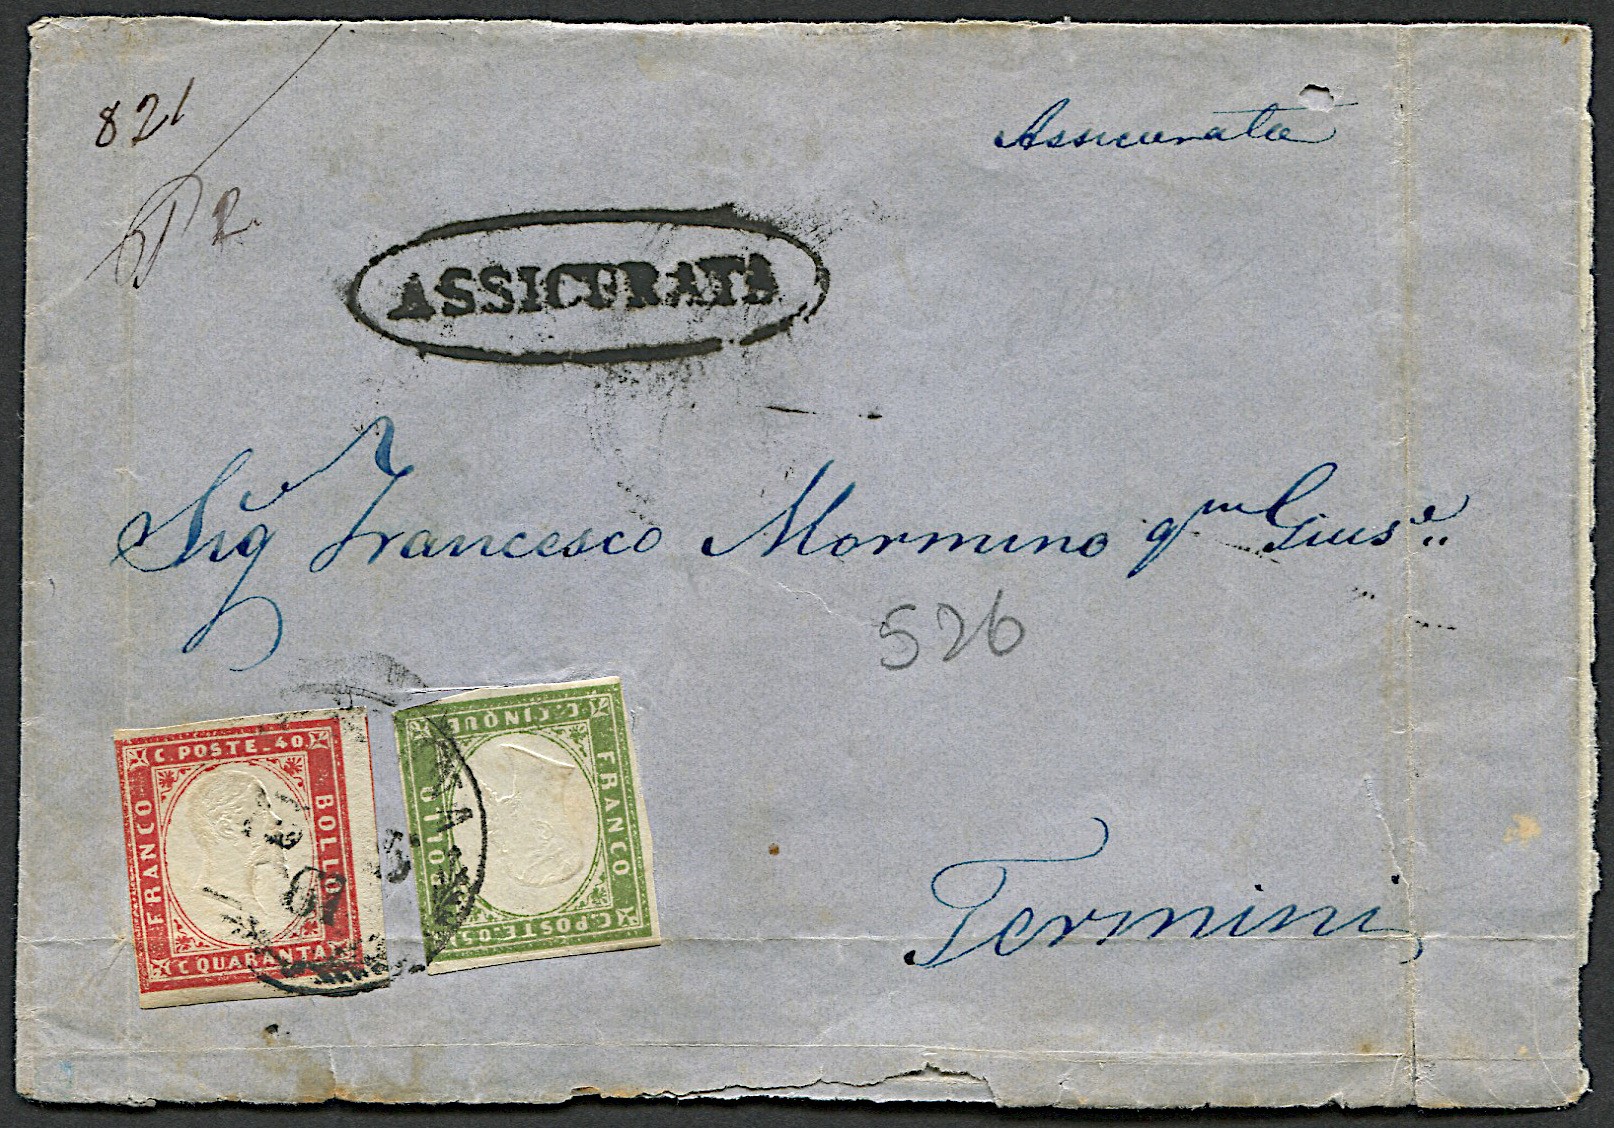 821
Assicurata
R.
ASSICURATA
Sig.r Francesco Mormino qm Gius.e
526
C. POSTE. 40
FRANCO
BOLLO
C QUARANTA
C. CINQUE
FRANCO
BOLLO
C. POSTE. 05
Termini